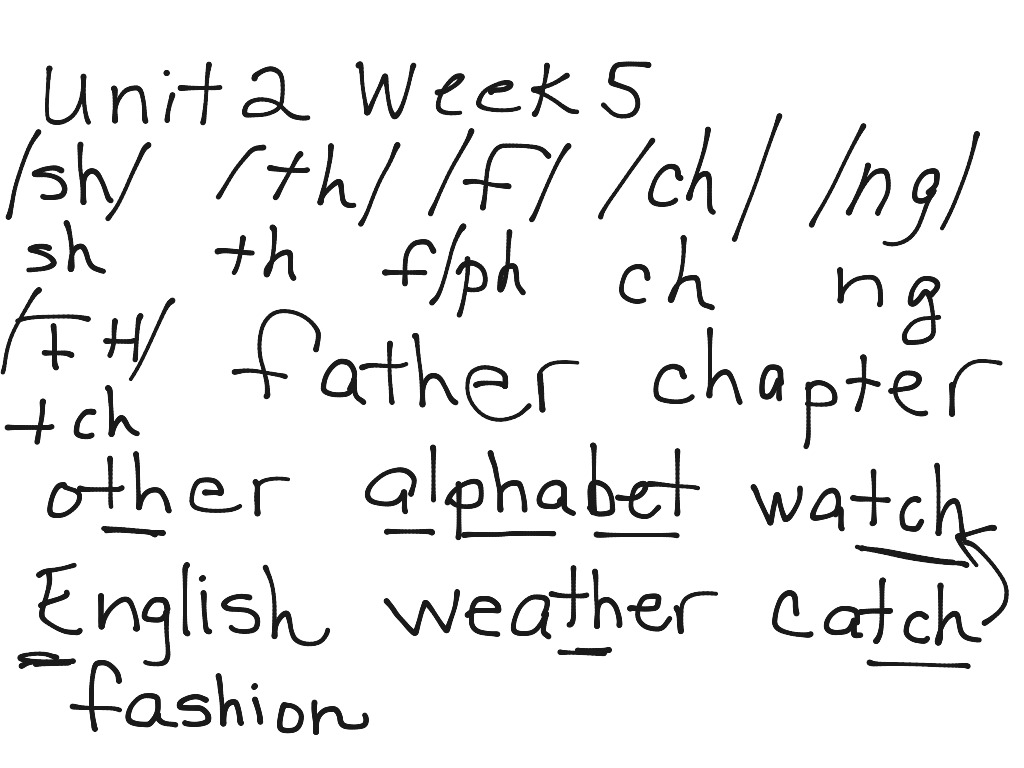 Unit 2 Week 5
/sh/ /th/ /f/ /ch/ /ng/
sh th f/ph ch ng
/TH/ father chapter
tch
other alphabet watch
English weather catch
fashion